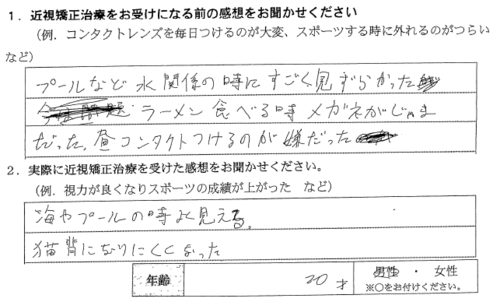 1．近視矯正治療をお受けになる前の感想をお聞かせください
（例．コンタクトレンズを毎日つけるのが大変、スポーツする時に外れるのがつらい
など）
プールなど水関係の時にすごく見ずらかった
ラーメン食べる時メガネがじゃま
だった。昼コンタクトつけるのが嫌だった
2．実際に近視矯正治療を受けた感想をお聞かせください。
（例．視力が良くなりスポーツの成績が上がった　など）
海やプールの時よく見える。
猫背になりにくくなった
年齢　20才　男性　・　女性
※○をお付けください。